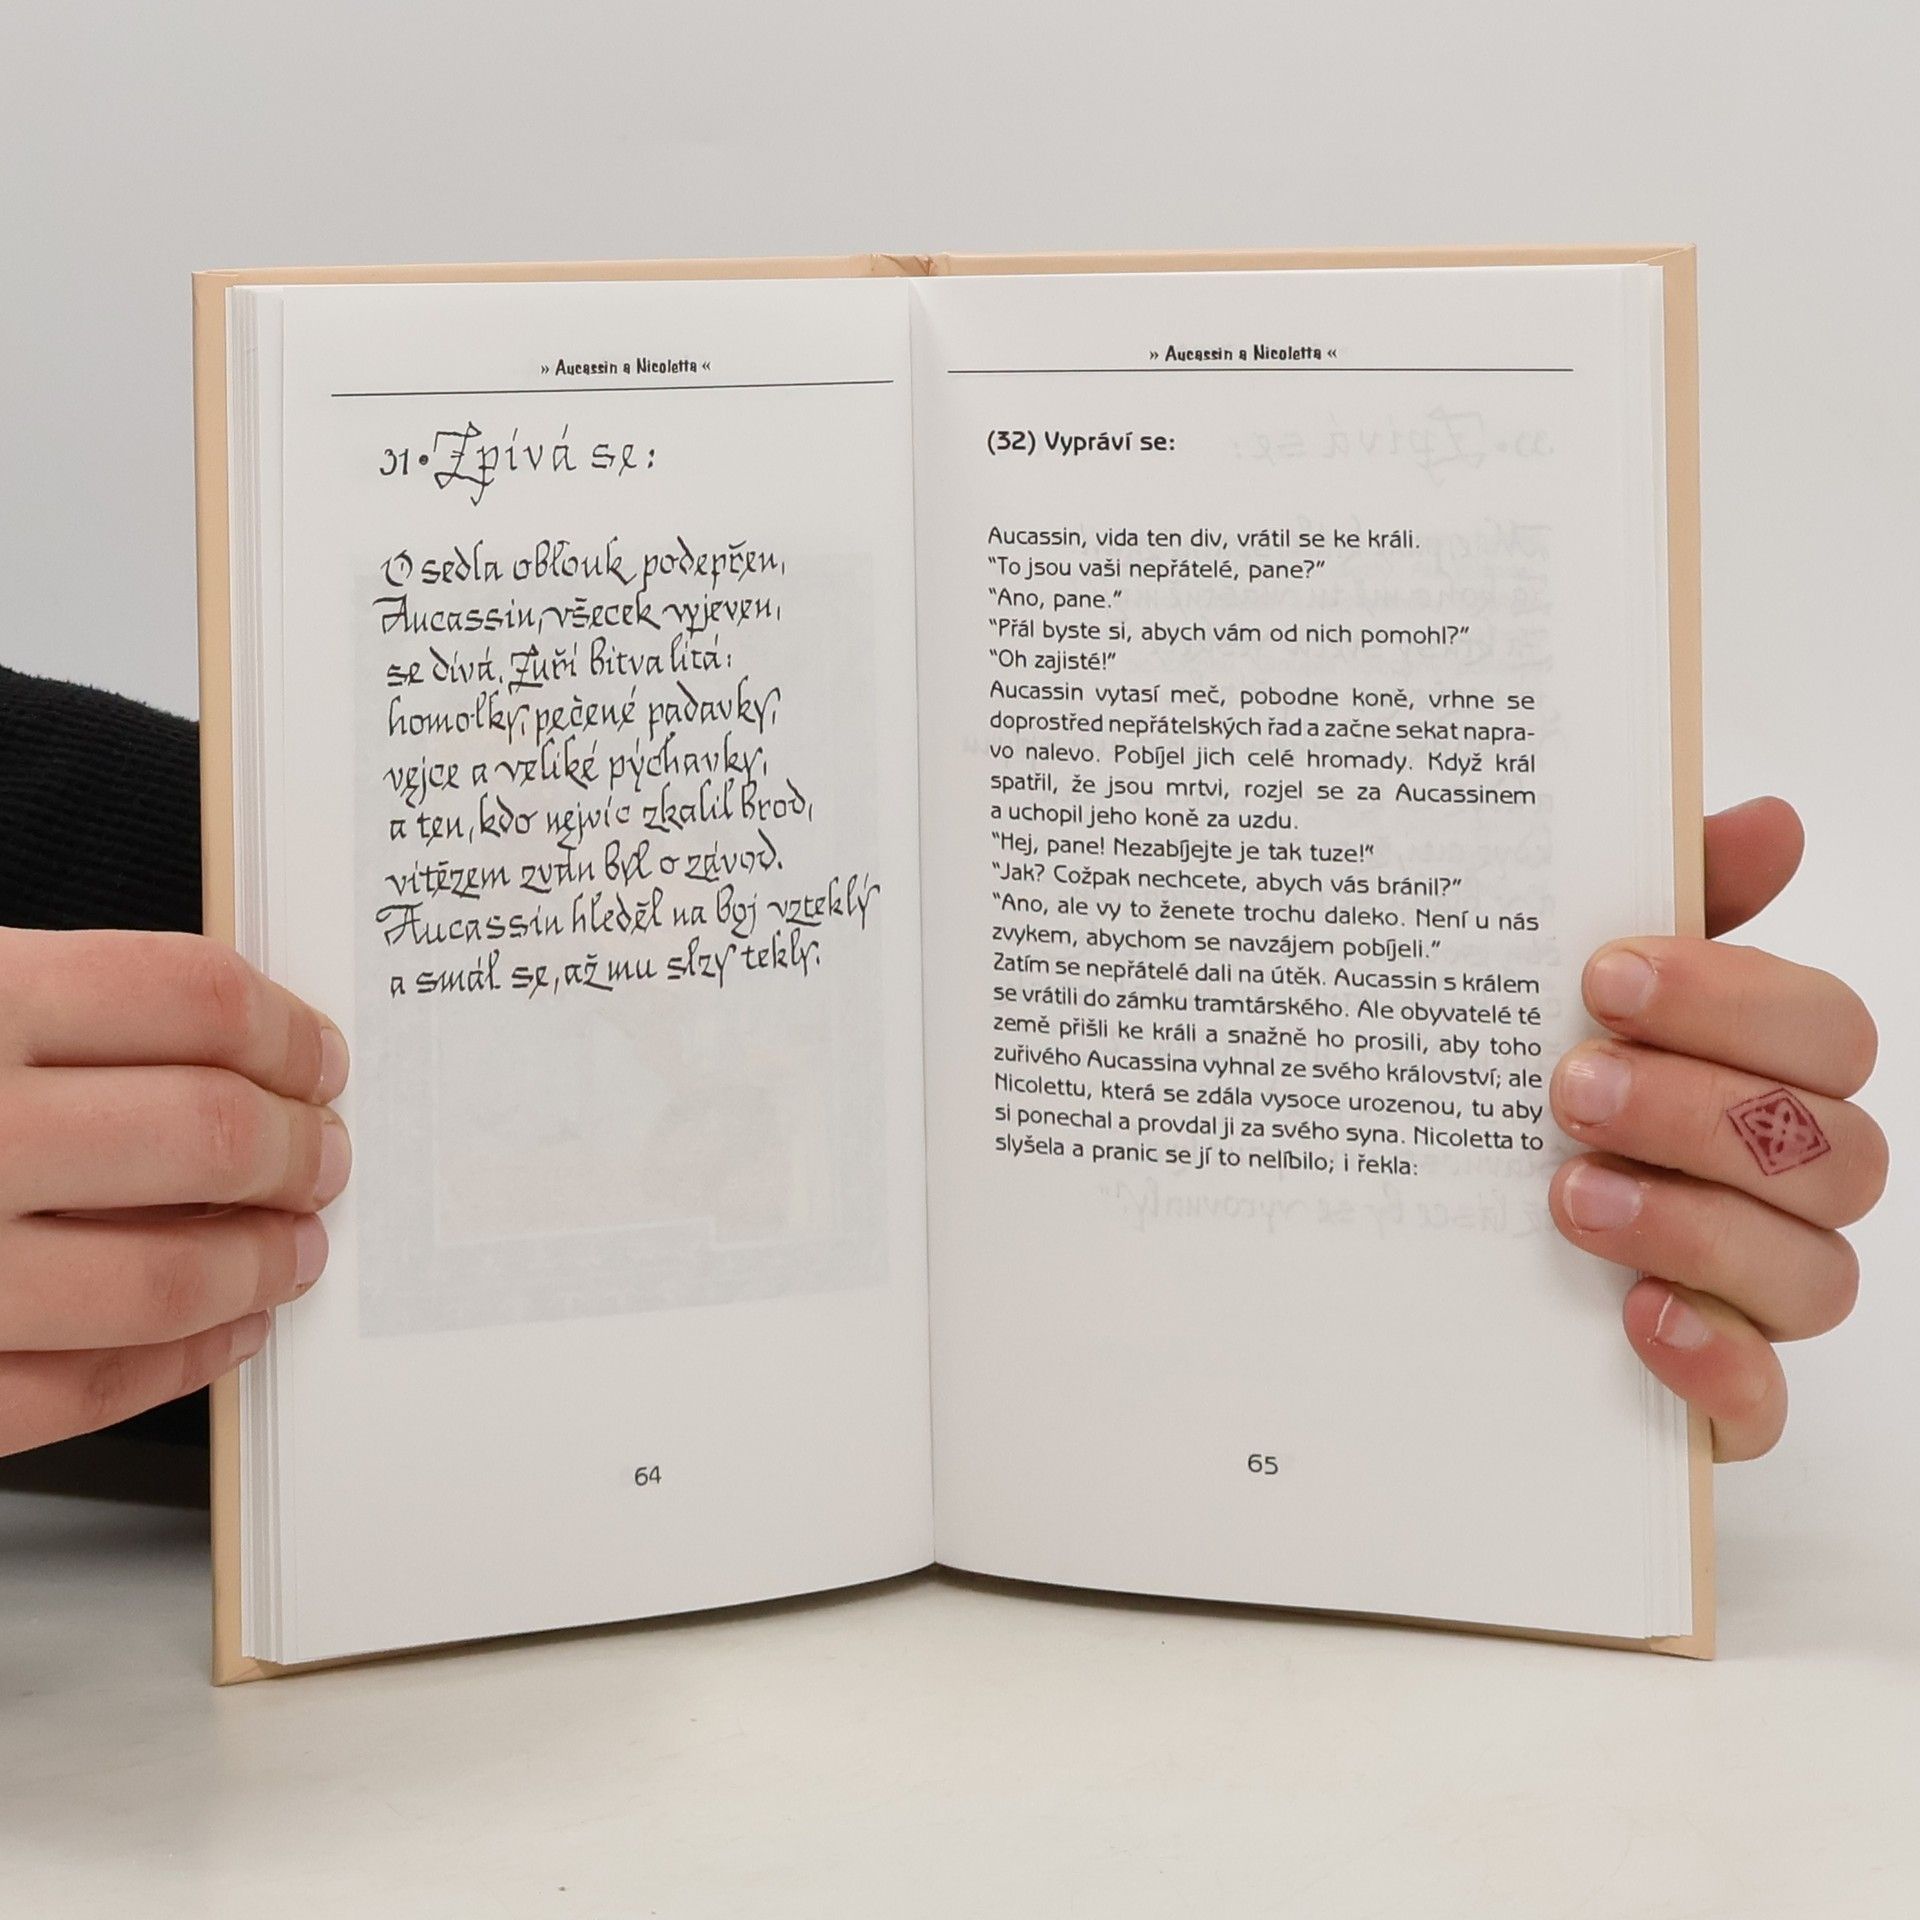 » Aucassin a Nicoletta «
31. Zpívá se:
O sedla oblouk podepřen,
Aucassin, všecek vyjeven,
se dívá. Zuří bitva lítá:
homolky, pečené padavky,
vejce a veliké pýchavky,
a ten, kdo nejvíc zkalil brod,
vítězem zván byl o závod.
Aucassin hleděl na boj vzteklý
a smál se, až mu slzy tekly.
64
» Aucassin a Nicoletta «
(32) Vypráví se:
Aucassin, vida ten div, vrátil se ke králi.
"To jsou vaši nepřátelé, pane?"
"Ano, pane."
"Přál byste si, abych vám od nich pomohl?"
"Oh zajisté!"
Aucassin vytasí meč, pobodne koně, vrhne se
doprostřed nepřátelských řad a začne sekat napra-
vo nalevo. Pobíjel jich celé hromady. Když král
spatřil, že jsou mrtvi, rozjel se za Aucassinem
a uchopil jeho koně za uzdu.
"Hej, pane! Nezabíjejte je tak tuze!"
"Jak? Cožpak nechcete, abych vás bránil?"
"Ano, ale vy to ženete trochu daleko. Není u nás
zvykem, abychom se navzájem pobíjeli."
Zatím se nepřátelé dali na útěk. Aucassin s králem
se vrátili do zámku tramtárského. Ale obyvatelé té
země přišli ke králi a snažně ho prosili, aby toho
zuřivého Aucassina vyhnal ze svého království; ale
Nicolettu, která se zdála vysoce urozenou, tu aby
si ponechal a provdal ji za svého syna. Nicoletta to
slyšela a pranic se jí to nelíbilo; i řekla:
65